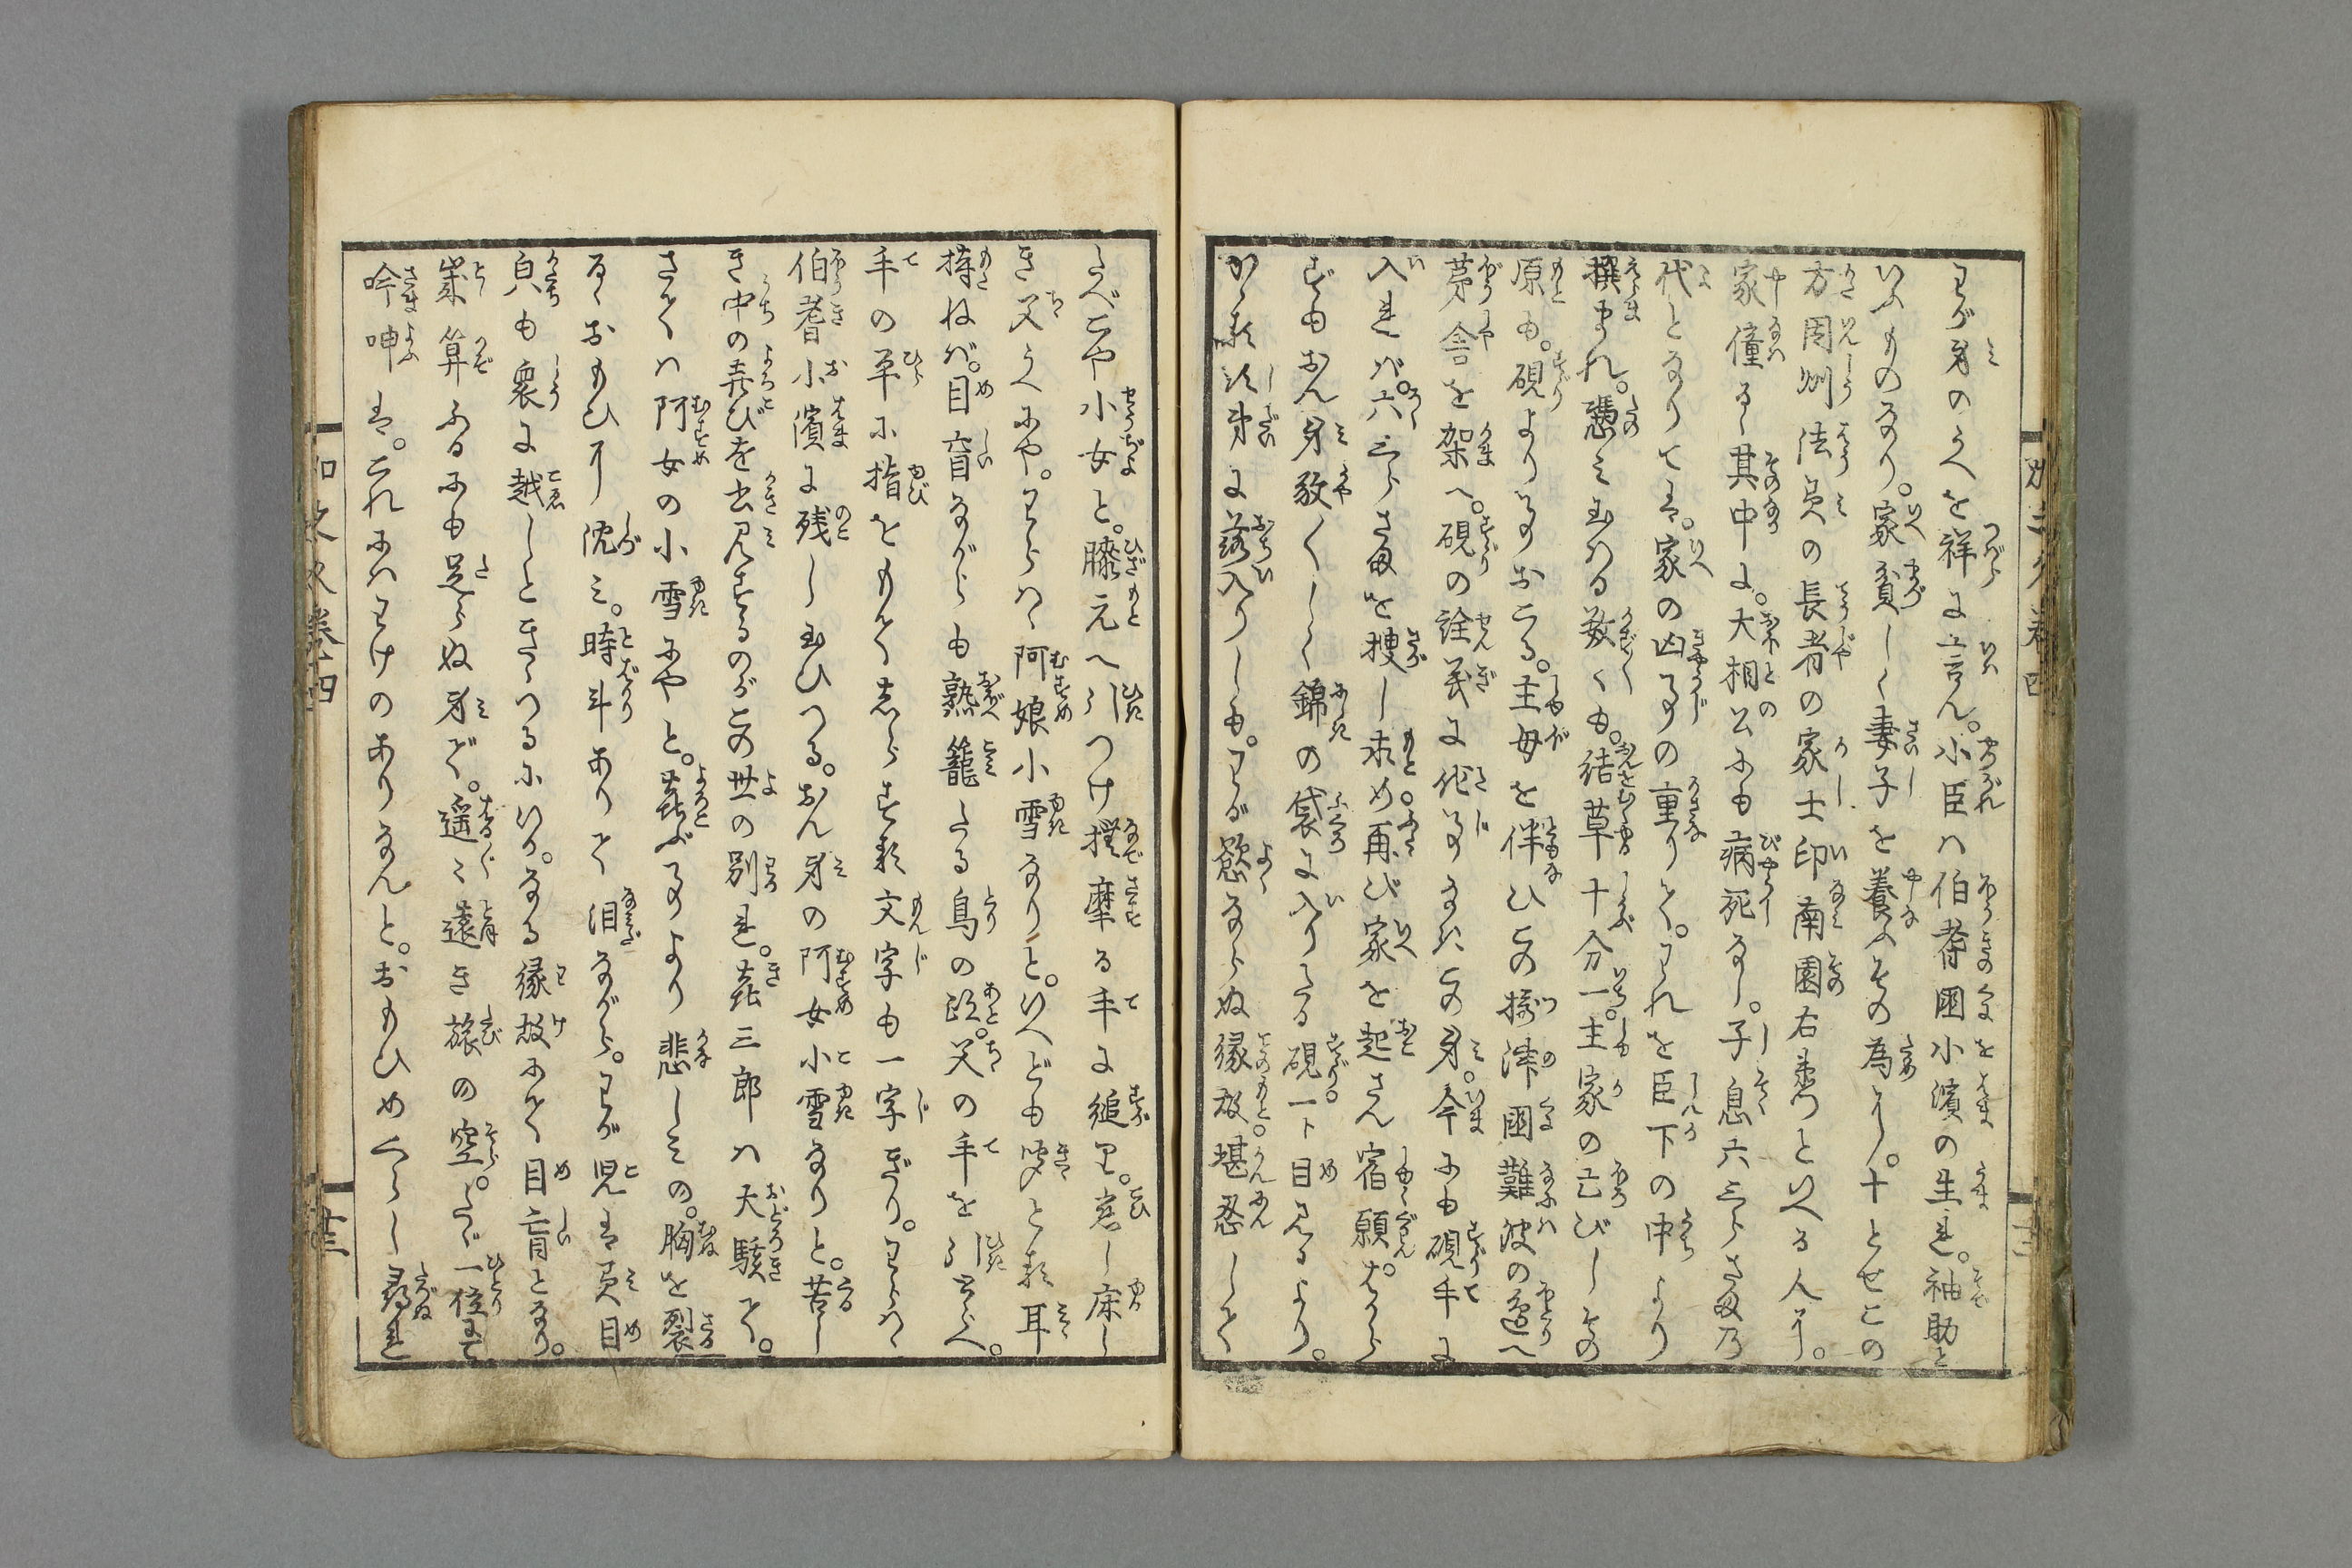 わが身のうへを祥に言ん。小臣ハ伯耆国小濱の生れ。袖助と
いふものなり。家貧しく妻子を養ふその為に。十とせこの
方周州法眞の長者の家士印南園右衛門といへる人に。
家僮る〻其中に。大相公にも病死なし。子息六三らさま乃
代となりては。家の凶事の重りて。われを臣下の中より
撰まれ。憑み玉はる数〻も。結草十分一。主家の亡びしその
原も。硯より事おこる。主母を伴ひこの摂津国難波の邊へ
茅舎を架へ。硯の詮義に他事なきこの身。今にも硯手に
入れバ。六三らさまを捜し求め再び家を起さん宿願。はから
ずもおん身敎くしく錦の袋に入りたる硯。一ト目見るより。
かゝる次第に落入りしも。わが慾ならぬ縁故。堪忍して
たべこや小女と。膝元へ引つけ撫摩る手に縋り。悲し床し
き父うへにや。わらハゝ阿娘小雪なりと。いへども咲とる耳
持ねバ。目盲ながらも熟籠たる鳥の跡。父の手を引よせ。
手の平に指をもてしるする文字も一字ぎり。わらハゝ
伯耆小濱に残し玉ひつる。おん身の阿女小雪なりと。苦し
き中の喜びを書見するのがこの世の別れ。喜三郎ハ大駭きて。
さてハ阿女の小雪にやと。喜ぶ事より悲しミの。胸を裂
るゝおもひに沈ミ。時斗ありて泪ながら。わが児は眞目
皃も衆に越しときゝつるにいかなる縁故にて目盲となり。
業算ふるにも足らぬ身ぞ。遥〻遠き旅の空。たゞ一個にて
吟呻は。これにハわけのありなんと。おもひめぐらし尋れ